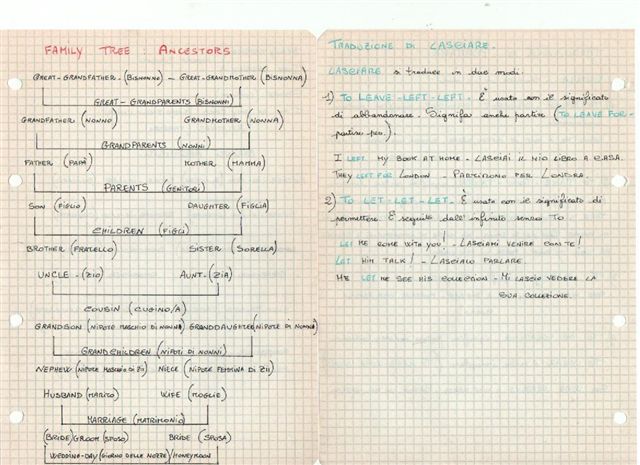 FAMILY TREE : ANCESTORS
GREAT-GRANDFATHER - (BISNONNO) - GREAT-GRANDMOTHER (BISNONNA)
GREAT-GRANDPARENTS (BISNONNI)
GRANDFATHER (NONNO) GRANDMOTHER (NONNA)
GRANDPARENTS (NONNI)
FATHER (PAPÀ) MOTHER (MAMMA)
PARENTS (GENITORI)
SON (FIGLIO) DAUGHTER (FIGLIA)
CHILDREN (FIGLI)
BROTHER (FRATELLO) SISTER (SORELLA)
UNCLE - (ZIO) AUNT - (ZIA)
COUSIN (CUGINO/A)
GRANDSON (NIPOTE MASCHIO DI NONNI) GRANDDAUGHTER (NIPOTE DI NONNI)
GRANDCHILDREN (NIPOTI DI NONNI)
NEPHEW (NIPOTE MASCHIO DI ZII) NIECE (NIPOTE FEMMINA DI ZII)
HUSBAND (MARITO) WIFE (MOGLIE)
MARRIAGE (MATRIMONIO)
(BRIDE) GROOM (SPOSO) BRIDE (SPOSA)
WEDDING-DAY (GIORNO DELLE NOZZE) / HONEYMOON
TRADUZIONE DI LASCIARE.
LASCIARE si traduce in due modi:
1) TO LEAVE - LEFT - LEFT - È usato con il significato
di abbandonare. Significa anche partire (TO LEAVE FOR -
partire per).
I LEFT MY BOOK AT HOME - LASCIAI IL MIO LIBRO A CASA.
THEY LEFT FOR LONDON - PARTIRONO PER LONDRA.
2) TO LET - LET - LET - È usato con il significato di
permettere. È seguito dall'infinito senza TO
LET ME COME WITH YOU! - LASCIAMI VENIRE CON TE!
LET HIM TALK! - LASCIALO PARLARE
HE LET ME SEE HIS COLLECTION - MI LASCIÒ VEDERE LA
SUA COLLEZIONE.